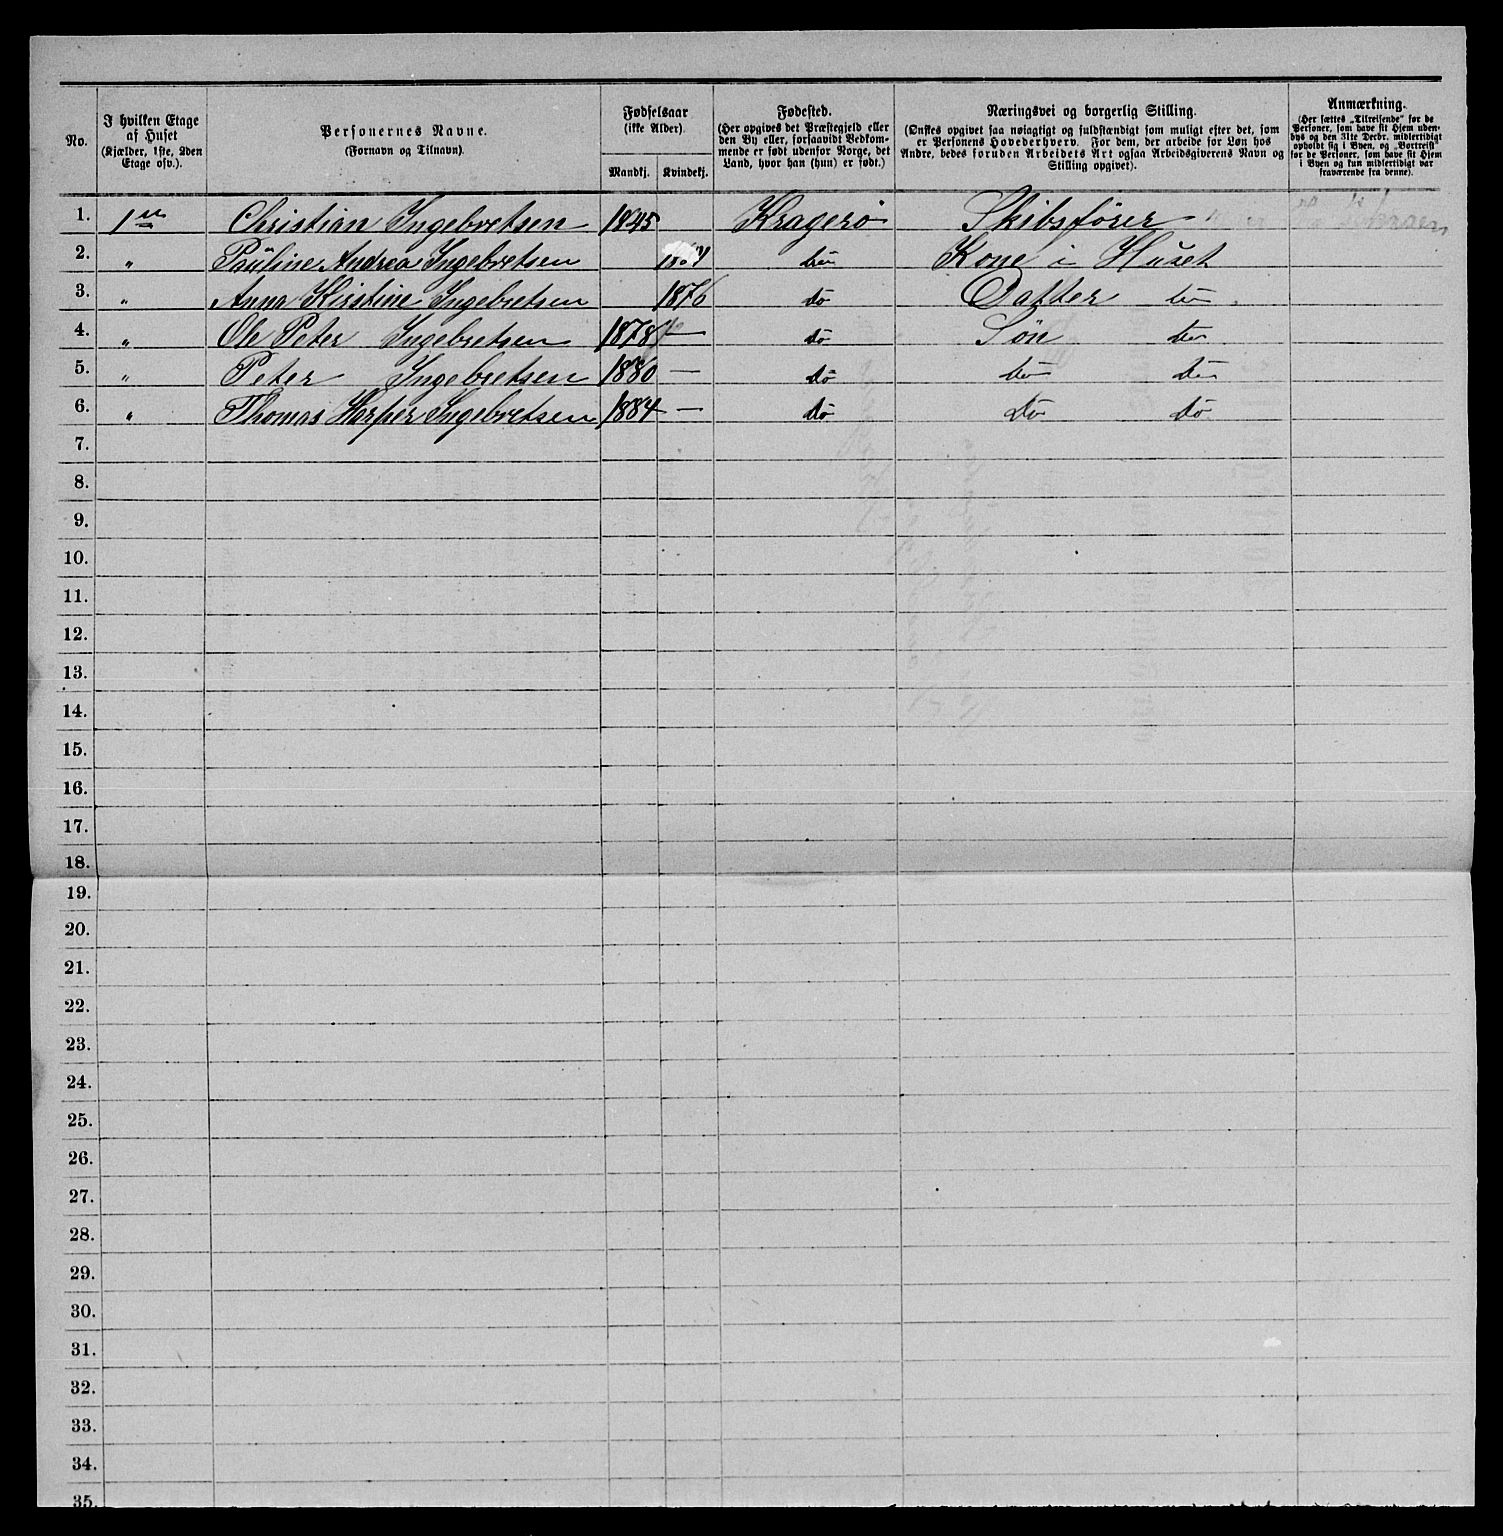 No.
I hvilken Etage af Huset (Kjælder, 1ste, 2den Etage osv.).
Personernes Navne. (Fornavn og Tilnavn).
Fødselsaar (ikke Alder).
Mandkj. Kvindekj.
Fødested. (Her opgives det Præstegjeld eller den By eller, forsaavidt Vedkommende er født udenfor Norge, det Land, hvor han (hun) er født.)
Næringsvei og borgerlig Stilling. (Ønskes opgivet saa nøiagtigt og fuldstændigt som muligt efter det, som er Personens Hovederhverv. For dem, der arbeide for Løn hos Andre, bedes foruden Arbeidets Art ogsaa Arbeidsgiverens Navn og Stilling opgivet).
Anmærkning. (Her sættes „Tilreisende“ for de Personer, som have sit Hjem udenbys og den 31te Decbr. midlertidigt opholdt sig i Byen, og „Bortreist“ for de Personer, som have sit Hjem i Byen og kun midlertidigt var fraværende fra denne).
1. 1ste Christian Ingebretsen 1845 Kragerø Skibsfører
2. " Pauline Andrea Ingebretsen do Kone i Huset
3. " Anna Kirstine Ingebretsen 1876 do Datter do
4. " Ole Peter Ingebretsen 1878 — do Søn do
5. " Peter Ingebretsen 1880 — do do do
6. " Thomas Ingebretsen 1884 — do do do
7.
8.
9.
10.
11.
12.
13.
14.
15.
16.
17.
18.
19.
20.
21.
22.
23.
24.
25.
26.
27.
28.
29.
30.
31.
32.
33.
34.
35.